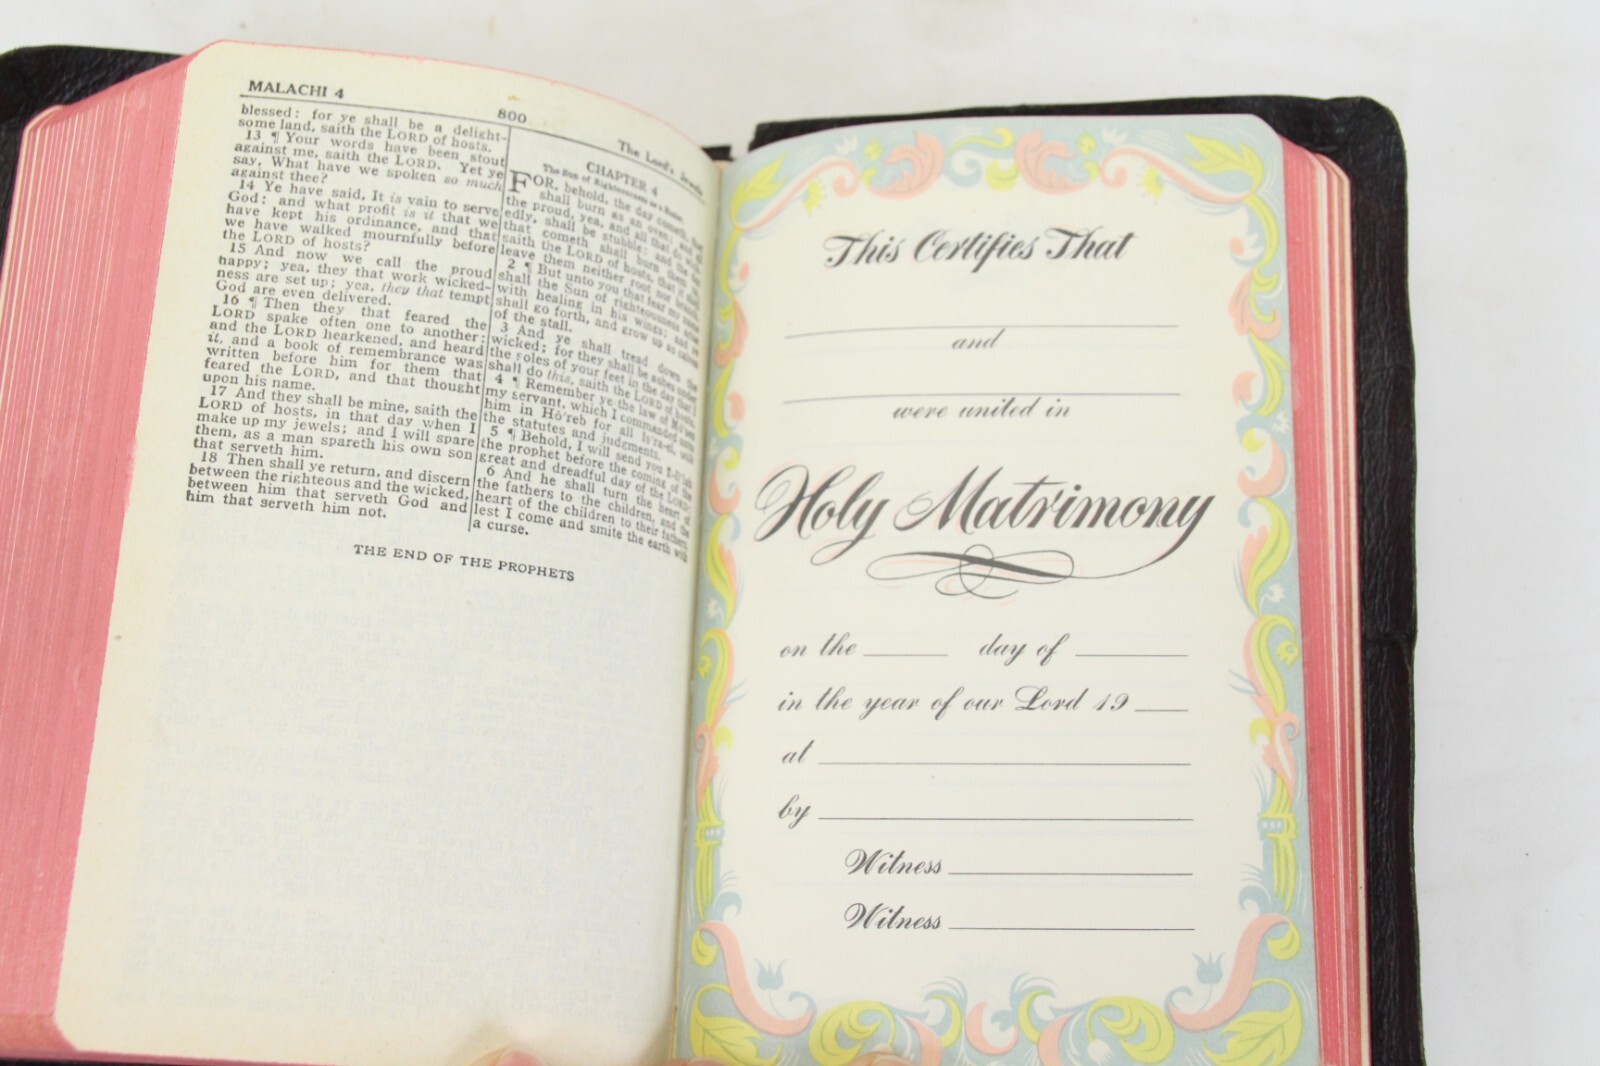 MALACHI 4
800
The Lord's Jewels
blessed: for ye shall be a delight-
some land, saith the LORD of hosts.
13 ¶ Your words have been stout
against me, saith the LORD. Yet ye
say, What have we spoken so much
against thee?
14 Ye have said, It is vain to serve
God: and what profit is it that we
have kept his ordinance, and that
we have walked mournfully before
the LORD of hosts?
15 And now we call the proud
happy; yea, they that work wicked-
ness are set up; yea, they that tempt
God are even delivered.
16 ¶ Then they that feared the
LORD spake often one to another:
and the LORD hearkened, and heard
it, and a book of remembrance was
written before him for them that
feared the LORD, and that thought
upon his name.
17 And they shall be mine, saith the
LORD of hosts, in that day when I
make up my jewels; and I will spare
them, as a man spareth his own son
that serveth him.
18 Then shall ye return, and discern
between the righteous and the wicked,
between him that serveth God and
him that serveth him not.
CHAPTER 4
The Sun of Righteousness
FOR, behold, the day cometh, that
shall burn as an oven; and all
the proud, yea, and all that do
edly, shall be stubble: and the day
that cometh shall burn them up,
saith the LORD of hosts, that it shall
leave them neither root nor branch.
2 ¶ But unto you that fear my name
shall the Sun of righteousness arise
with healing in his wings; and ye
shall go forth, and grow up as calves
of the stall.
3 And ye shall tread down the
wicked; for they shall be ashes under
the soles of your feet in the day that I
shall do this, saith the LORD of hosts.
4 ¶ Remember ye the law of Mo'ses
my servant, which I commanded unto
him in Hô'reb for all Is'ra-el, with
the statutes and judgments.
5 ¶ Behold, I will send you E-li'jah
the prophet before the coming of the
great and dreadful day of the LORD:
6 And he shall turn the heart of
the fathers to the children, and the
heart of the children to their fathers,
lest I come and smite the earth with
a curse.
THE END OF THE PROPHETS
This Certifies That
and
were united in
Holy Matrimony
on the day of
in the year of our Lord 19
at
by
Witness
Witness